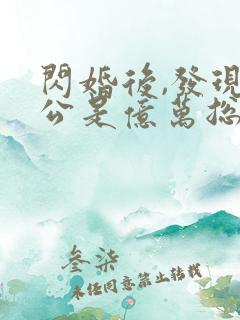 閃婚後,發現
公是億萬総
叁柒
未經同意禁止转载